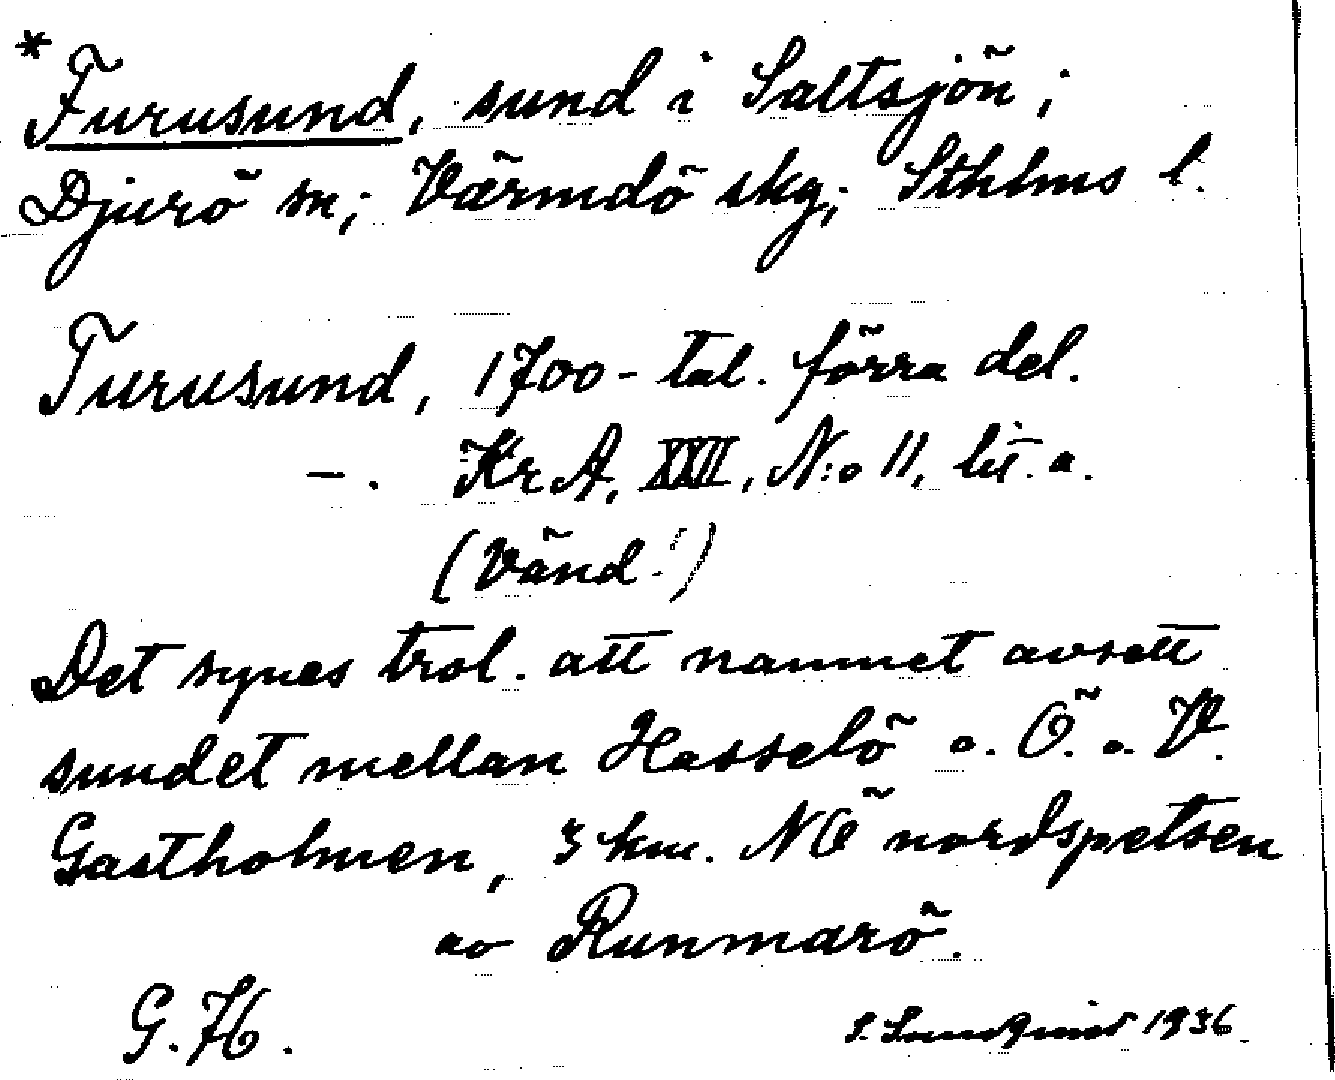 *Furusund, sund i Saltsjön;
Djurö sn; Värmdö skg; Sthlms l.
Furusund, 1700-tal. förra del.
-. Kr.A, XXII, N:o 11, lit. a.
(Vänd!)
Det synes trol. att namnet avsett
sundet mellan Hasselö o. Ö. o. V.
Gastholmen, 3 km. NÖ nordspetsen
av Runmarö.
G.H.
S. Lundqvist 1936